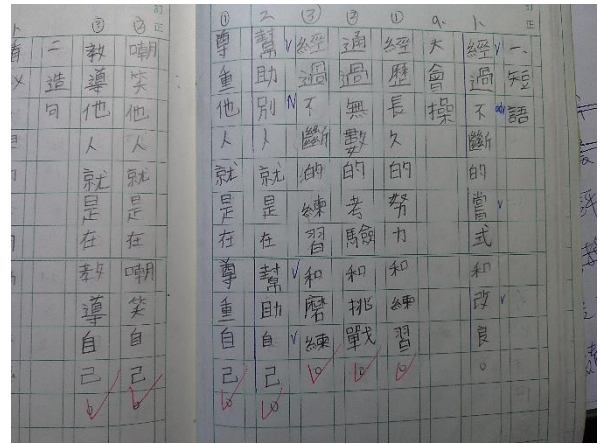 訂正
一、短語
1、經過不斷的嘗式和改良。
9、大會操
①經歷長久的努力和練習。
②通過無數的考驗和挑戰。
③經過不斷的練習和磨練。
2、幫助別人就是在幫助自己。
①尊重他人就是在尊重自己。
訂正
②嘲笑他人就是在嘲笑自己。
③教導他人就是在教導自己。
二、造句